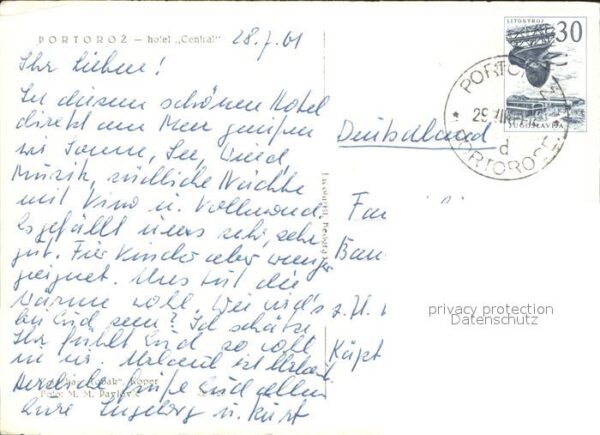 PORTOROŽ – hotel „Central"
28.7.61
Ihr Lieben!
In diesem schönen Hotel
direkt am Meer genießen
wir Sonne, See, Wind,
Musik, südliche Nächte
mit Vino u. Vollmond.
Es gefällt uns sehr, sehr
gut. Für Kinder aber weniger
geeignet. Uns tut die
Wärme wohl. Wie wird's
bei Euch sein? Ich schätze,
Ihr fühlt Euch so wohl
wie wir. Urlaub ist Urlaub.
Herzliche Grüße Euch allen
Eure Ingeborg u. Kurt
Koper
Foto: M. M. Pavlovič
LITOSTROJ
30
JUGOSLAVIJA
PORTOROŽ
29.VII.61
d
PORTOROSE
Deutschland
Fa
Bau
z. Zt.
Käpt
privacy protection
Datenschutz